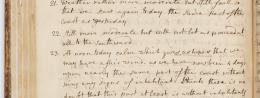 21. Weather rather more moderate but still foul, so
that we saw again today the same part of the
coast as yesterday.
22. Still more moderate but with swell as
the Southward.
23. At noon today calm which gave us hopes that we
may have a fair wind, as we have now been 4 days
upon nearly the same part of the coast without
any signs of inhabitants I think there is no
doubt that this part at least is without inhabitants